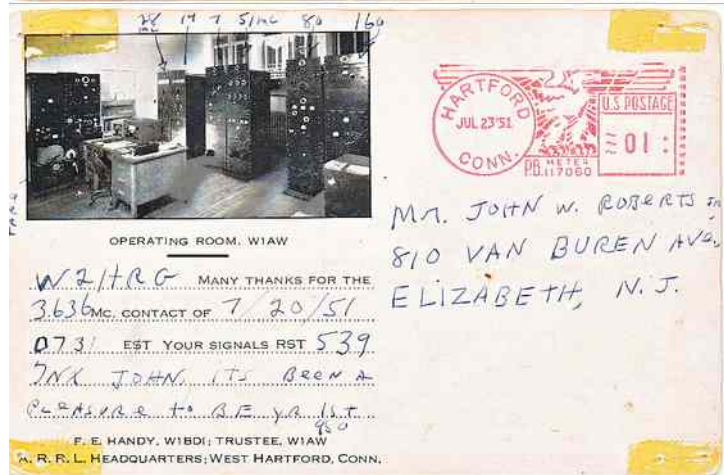 28 14 7 51mc 80 160
mc
OPERATING ROOM, W1AW
W2HRG MANY THANKS FOR THE
3.636 MC. CONTACT OF 7/20/51
0731 EST YOUR SIGNALS RST 539
TNX JOHN, ITS BEEN A
PLEASURE to BE yr 1st
QSO
F. E. HANDY, W1BDI; TRUSTEE, W1AW
A. R. R. L. HEADQUARTERS; WEST HARTFORD, CONN.
HARTFORD
JUL 23 '51
CONN.
U.S POSTAGE
01
P.B. METER
117060
Mr. JOHN W. ROBERTS JR
810 VAN BUREN AVE,
ELIZABETH, N.J.